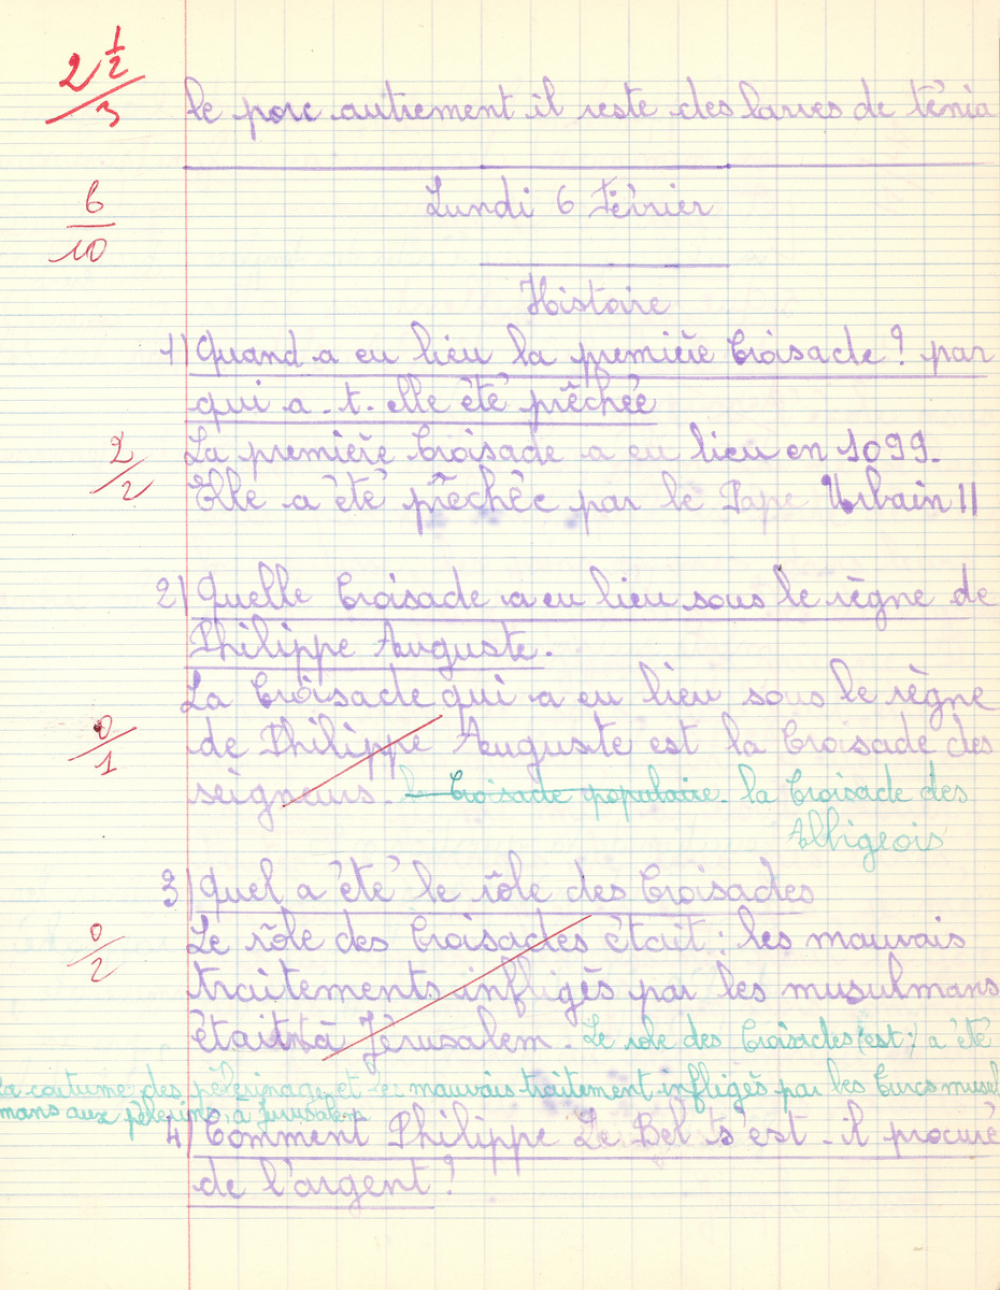 2 1/2
/3
le porc autrement il reste des larves de ténia
6
10
Lundi 6 Février
Histoire
1) Quand a eu lieu la première Croisade? par
qui a-t-elle été prêchée
2/2
La première Croisade a eu lieu en 1099.
Elle a été prêchée par le Pape Urbain II
2) Quelle Croisade a eu lieu sous le règne de
Philippe Auguste.
La Croisade qui a eu lieu sous le règne
0/1
de Philippe Auguste est la Croisade des
seigneurs. la Croisade populaire. la Croisade des
Albigeois
3) Quel a été le rôle des Croisades
0/2
Le rôle des Croisades était: les mauvais
traitements infligés par les musulmans
était à Jérusalem. Le role des Croisades (est:) a été
la coutume des pèlerinages et les mauvais traitement infligés par les Turcs musul
mans aux pèlerins, à Jérusalem
4) Comment Philippe Le Bel s'est-il procuré
de l'argent?